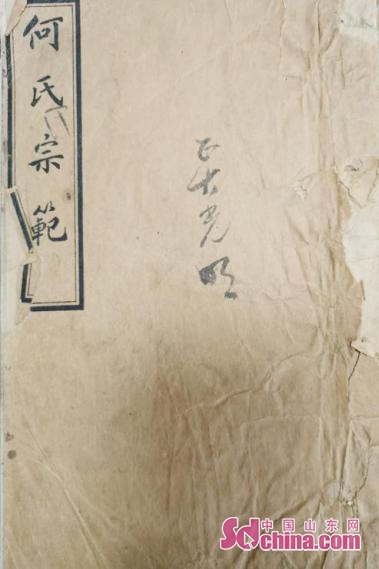 何氏宗範
正大光明
中国山东网
Sdchina.com